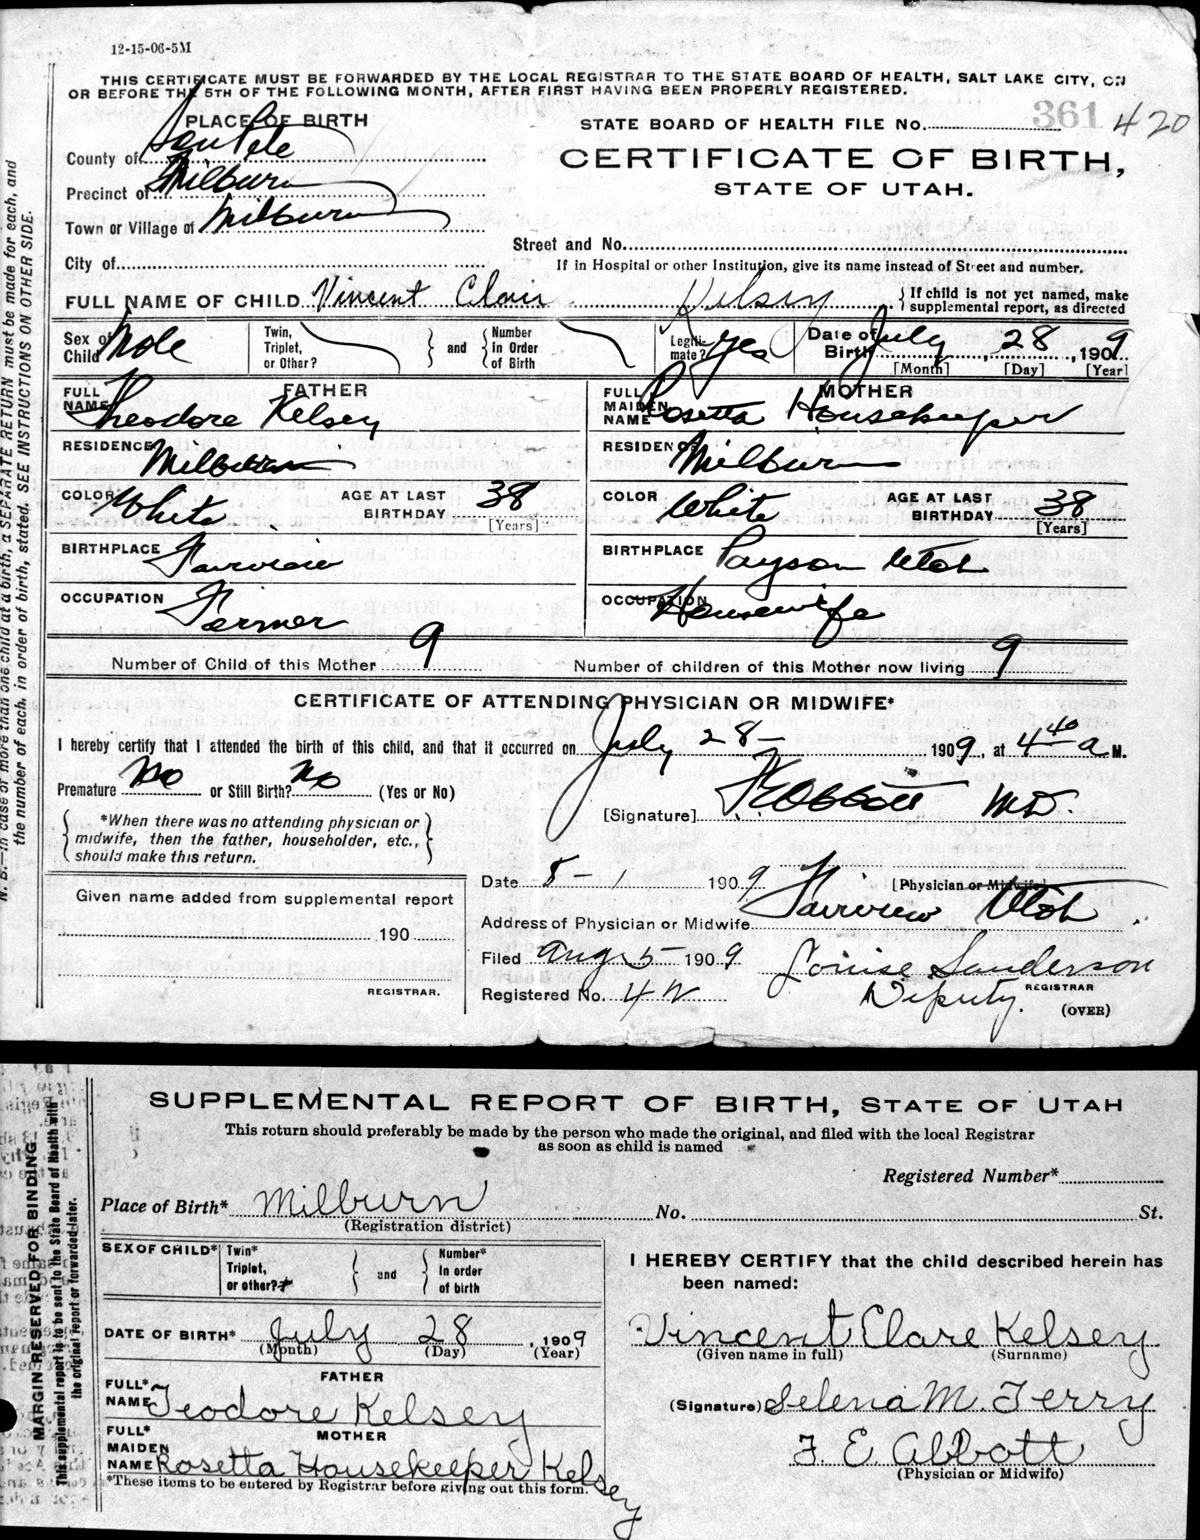 12-15-06-5M
THIS CERTIFICATE MUST BE FORWARDED BY THE LOCAL REGISTRAR TO THE STATE BOARD OF HEALTH, SALT LAKE CITY, ON
OR BEFORE THE 5TH OF THE FOLLOWING MONTH, AFTER FIRST HAVING BEEN PROPERLY REGISTERED.
N. B.—In case of more than one child at a birth, a SEPARATE RETURN must be made for each, and
the number of each, in order of birth, stated. SEE INSTRUCTIONS ON OTHER SIDE.
PLACE OF BIRTH
STATE BOARD OF HEALTH FILE No. 361 420
County of SanPete
CERTIFICATE OF BIRTH,
Precinct of Milburn
STATE OF UTAH.
Town or Village of Milburn
Street and No.
City of
If in Hospital or other Institution, give its name instead of Street and number.
FULL NAME OF CHILD Vincent Clair Kelsey { If child is not yet named, make supplemental report, as directed
Sex of Child Male Twin, Triplet, or Other? } and { Number In Order of Birth Legiti- mate? Yes Date of Birth July 28, 1909
[Month] [Day] [Year]
FATHER MOTHER
FULL NAME Theodore Kelsey FULL MAIDEN NAME Rosetta Housekeeper
RESIDENCE Milburn RESIDENCE Milburn
COLOR White AGE AT LAST BIRTHDAY 38 [Years] COLOR White AGE AT LAST BIRTHDAY 38 [Years]
BIRTHPLACE Fairview BIRTHPLACE Payson Utah
OCCUPATION Farmer OCCUPATION Housewife
Number of Child of this Mother 9 Number of children of this Mother now living 9
CERTIFICATE OF ATTENDING PHYSICIAN OR MIDWIFE*
I hereby certify that I attended the birth of this child, and that it occurred on July 28- 1909, at 4 40 a M.
Premature No or Still Birth? No (Yes or No)
[Signature] Abbott MD.
{ *When there was no attending physician or
midwife, then the father, householder, etc.,
should make this return. }
Date 8-1 1909 [Physician or Midwife]
Given name added from supplemental report
Address of Physician or Midwife Fairview Utah
190
Filed Aug 5 1909 Louise Sanderson
REGISTRAR. Registered No. 42 Deputy. REGISTRAR
(OVER)
MARGIN RESERVED FOR BINDING
This supplemental report is to be sent to the State Board of Health with
the original report or forwarded later.
SUPPLEMENTAL REPORT OF BIRTH, STATE OF UTAH
This return should preferably be made by the person who made the original, and filed with the local Registrar
as soon as child is named
Registered Number*
Place of Birth* Milburn No. St.
(Registration district)
SEX OF CHILD* Twin* Triplet, or other? } and { Number* In order of birth
I HEREBY CERTIFY that the child described herein has
been named:
DATE OF BIRTH* July 28, 1909 Vincent Clare Kelsey
(Month) (Day) (Year) (Given name in full) (Surname)
FATHER
FULL* NAME Teodore Kelsey (Signature) Selena M. Terry
MOTHER
F. E. Abbott
FULL* MAIDEN NAME Rosetta Housekeeper Kelsey (Physician or Midwife)
*These items to be entered by Registrar before giving out this form.